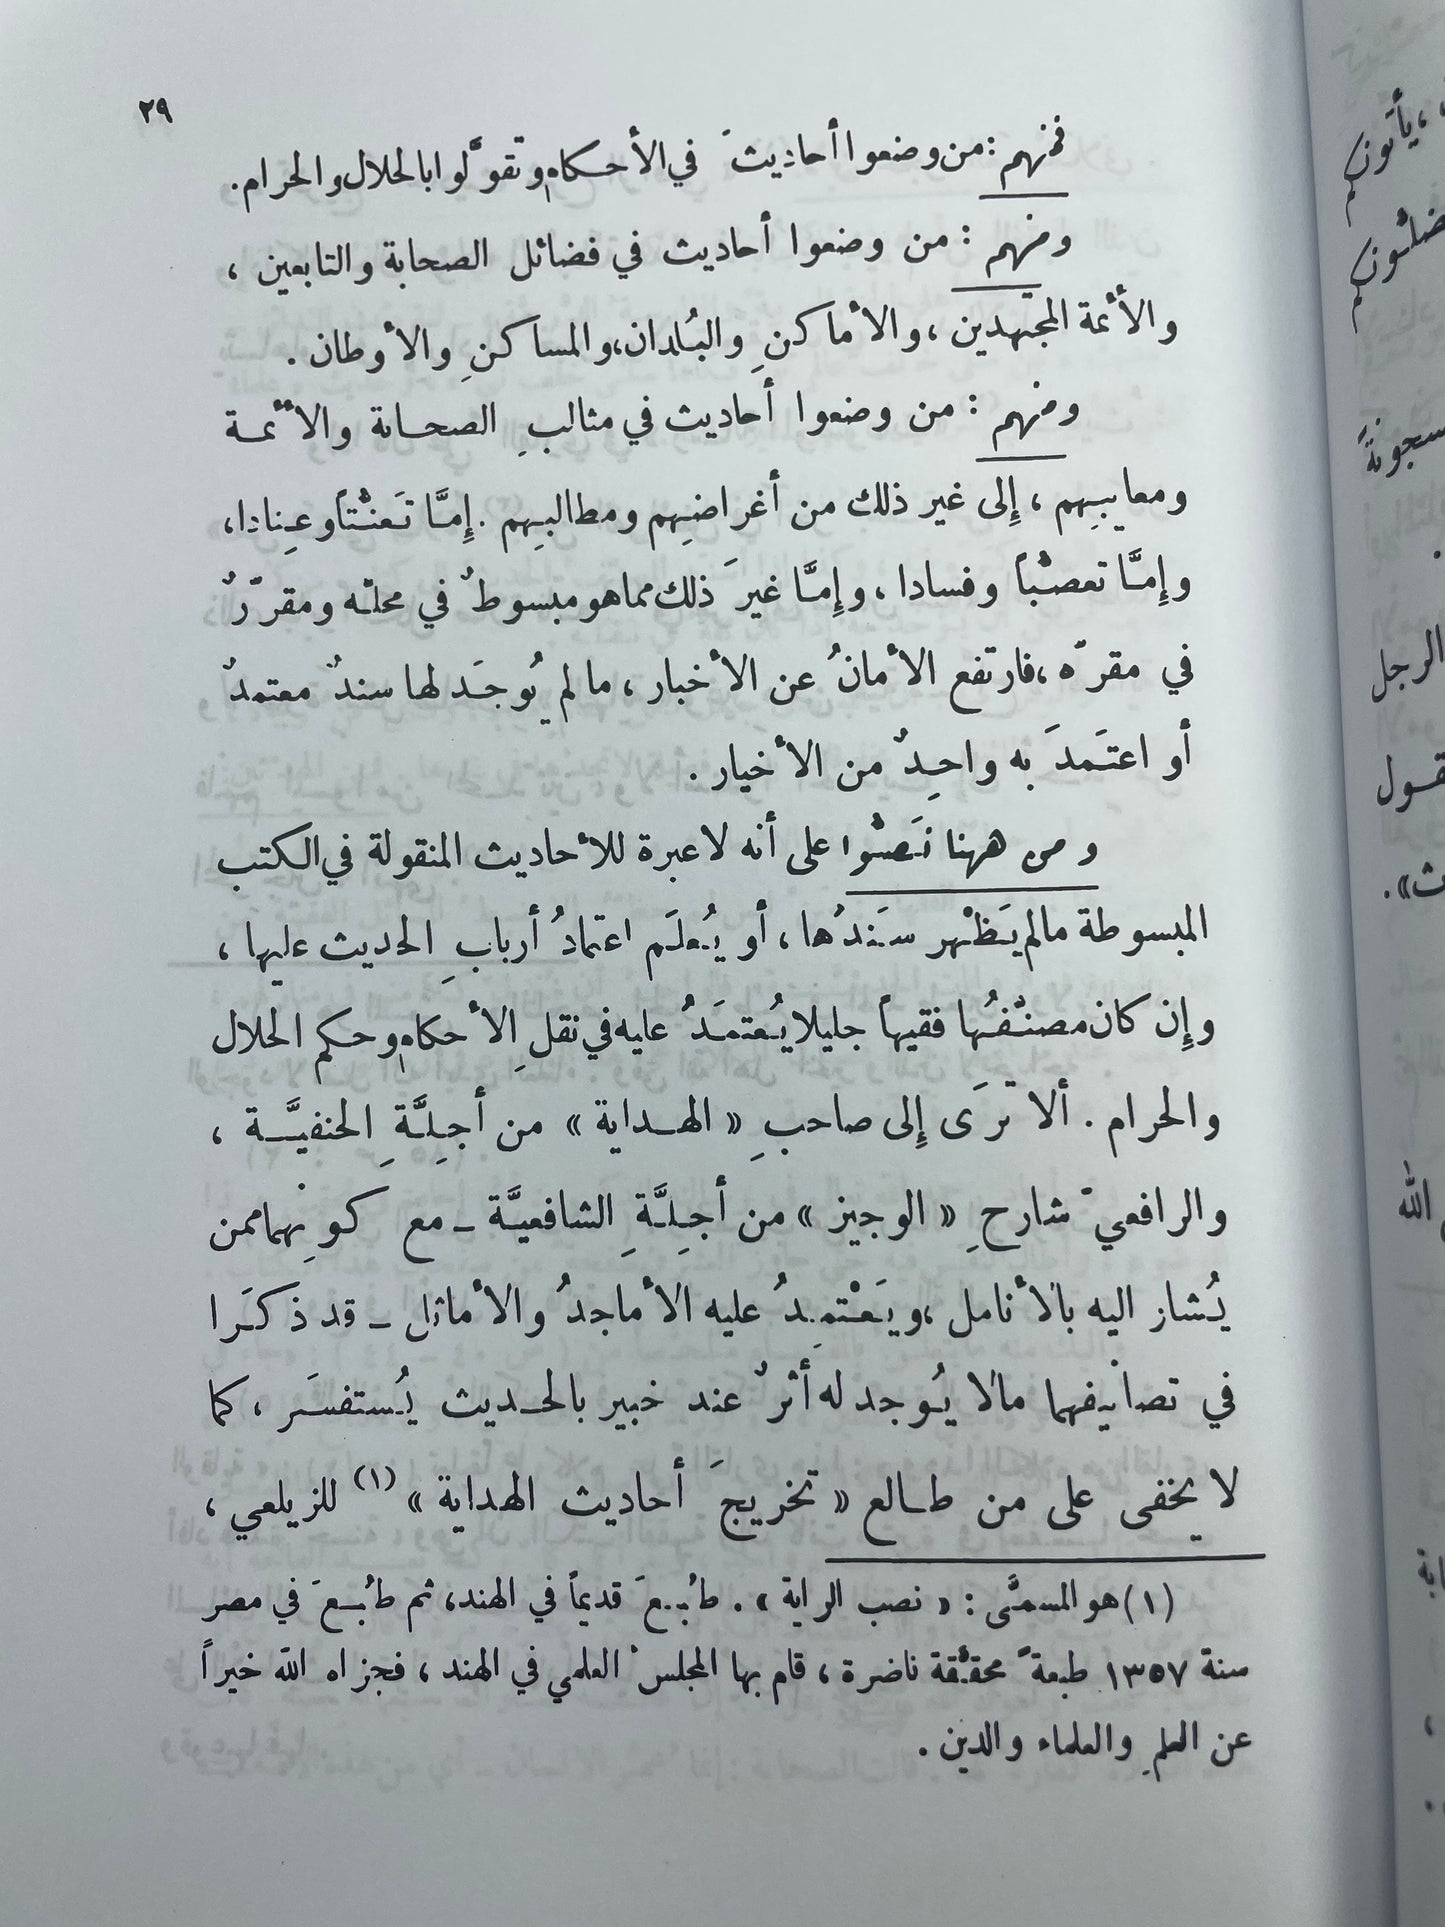 ٢٩
فمنهم : من وضعوا أحاديثَ في الأحكام وتقوَّلوا بالحلال والحرام.
ومنهم : من وضعوا أحاديث في فضائل الصحابة والتابعين ،
والأئمة المجتهدين ، والأماكنِ والبُلدان، والمساكنِ والأوطان .
ومنهم : من وضعوا أحاديث في مثالبِ الصحابة والأئمة
ومعايبِهم ، إلى غير ذلك من أغراضِهم ومطالبِهم . إمَّا تَعنُّتاً وعِنادا،
وإمَّا تعصُّباً وفسادا ، وإمَّا غيرَ ذلك مما هو مبسوطٌ في محلّه ومقرّرٌ
في مقرّه ، فارتفع الأمانُ عن الأخبار ، ما لم يُوجَد لها سندٌ معتمدٌ
أو اعتَمدَ به واحِدٌ من الأخيار .
ومن ههنا نَصُّوا على أنه لا عبرة للأحاديث المنقولة في الكتب
المبسوطة ما لم يَظْهر سَنَدُها ، أو يُعلَم اعتمادُ أربابِ الحديث عليها ،
وإن كان مصنِّفُها فقيهاً جليلا يُعتمَدُ عليه في نقلِ الأحكام وحكم الحلال
والحرام . ألا ترَى إلى صاحبِ « الهداية » من أجِلَّةِ الحنفيَّة ،
والرافعيّ شارحِ « الوجيز » من أجِلَّةِ الشافعيَّة ــ مع كونِهما ممن
يُشار اليه بالأنامل ، ويَعْتمِدُ عليه الأماجدُ والأماثل ــ قد ذكَرا
في تصانيفهما مالا يُوجد له أثرٌ عند خبير بالحديث يُستفسَر ، كما
لا يخفى على من طالع « تخريجَ أحاديث الهداية » (١) للزيلعي ،
(١) هو المسمَّى : « نصب الراية » . طُبِعَ قديماً في الهند، ثم طُبِعَ في مصر
سنة ١٣٥٧ طبعةً محقَّقة ناضرة ، قام بها المجلسُ العلمي في الهند ، فجزاه الله خيراً
عن العلمِ والعلماء والدين .